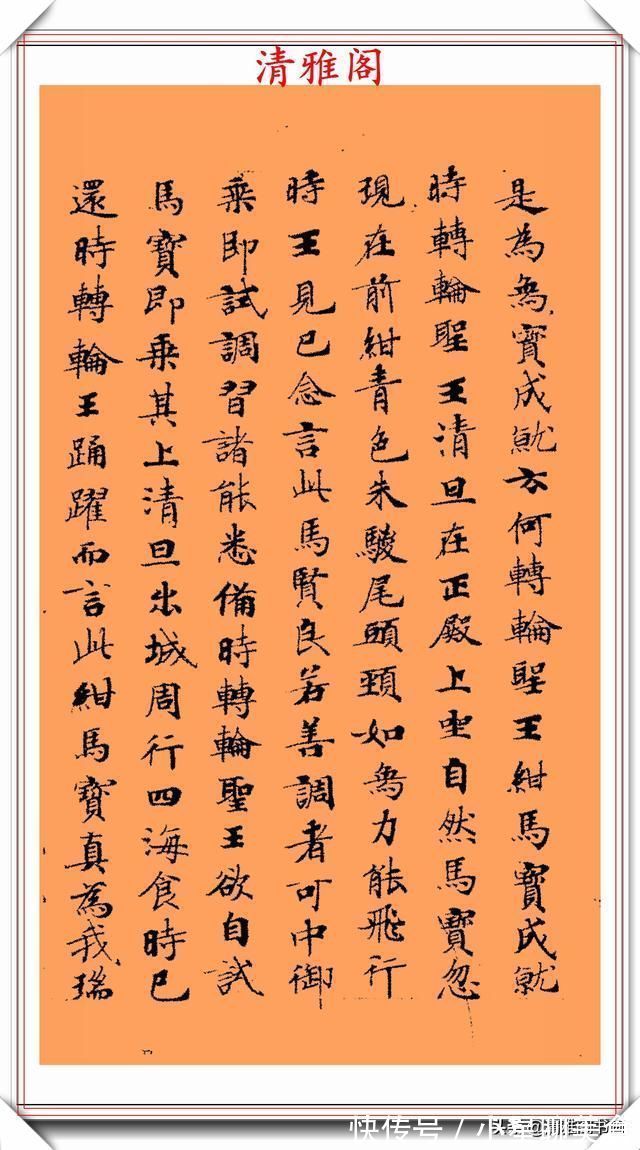 清雅阁
是為烏寶成就云何轉輪聖王紺馬寶成就
時轉輪聖王清旦在正殿上坐自然馬寶忽
現在前紺青色朱騣尾頭頚如烏力能飛行
時王見已念言此馬賢良若善調者可中御
乘即試調習諸能悉備時轉輪聖王欲自試
馬寶即乘其上清旦出城周行四海食時已
還時轉輪王踊躍而言此紺馬寶真為我瑞
快传号/